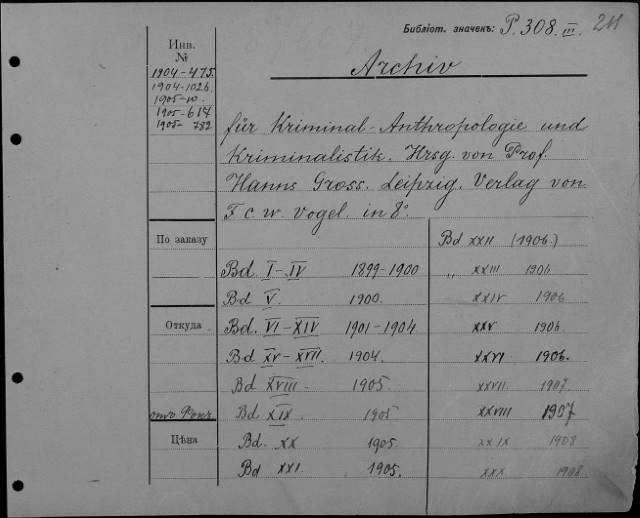 Библіот. значекъ: P. 308. III. 211
Archiv
Инв.
№
1904-475.
1904-1026.
1905-10.
1905-617
1905-782
für Kriminal-Anthropologie und
Kriminalistik. Hrsg. von Prof.
Hanns Gross. Leipzig. Verlag von
F. C. W. Vogel. in 8°.
По заказу
Откуда
отъ Фокк.
Цѣна
Bd. I-IV 1899-1900
Bd V. 1900.
Bd. VI-XIV 1901-1904
Bd XV-XVII. 1904.
Bd XVIII- 1905.
Bd XIX 1905
Bd. XX 1905.
Bd XXI. 1905.
Bd XXII (1906.)
„ XXIII 1906
XXIV 1906
XXV 1906.
XXVI 1906.
XXVII. 1907
XXVIII 1907
XXIX 1908
XXX 1908.